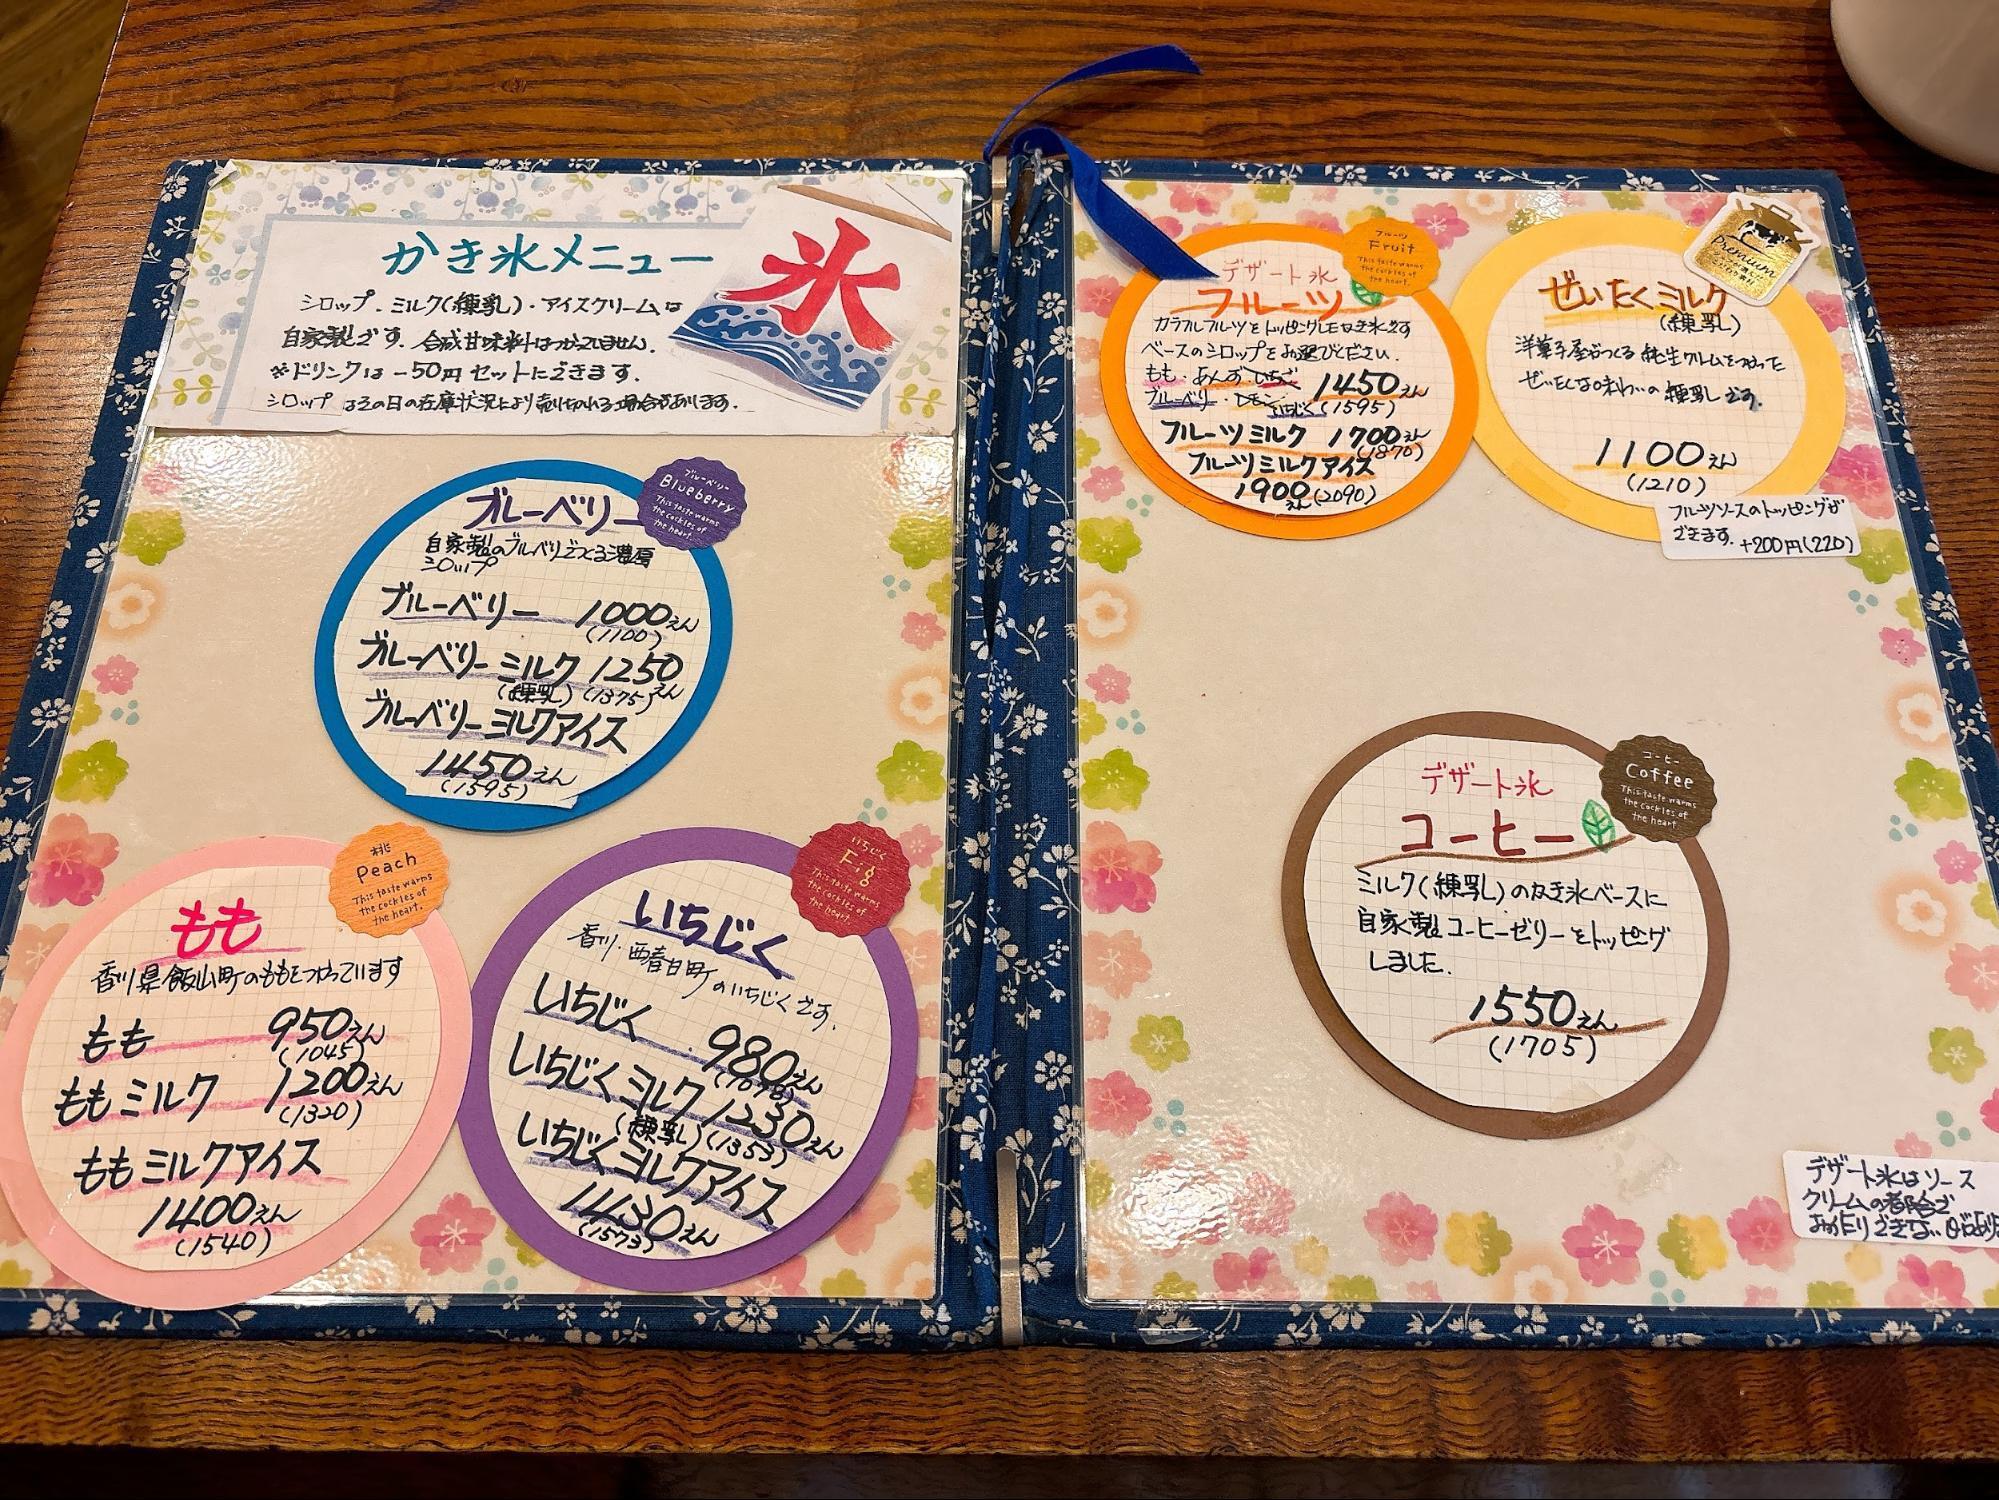 かき氷メニュー
氷
シロップ・ミルク(練乳)・アイスクリームは
自家製です。合成甘味料はつかっていません。
※ドリンクは-50円セットにできます。
シロップはその日の在庫状況により売り切れる場合があります。
ブルーベリー
ブルーベリー
Blueberry
This taste warms
the cockles of
the heart.
自家製のブルーベリーでつくる濃厚
シロップ
ブルーベリー 1000えん
(1100)
ブルーベリーミルク 1250えん
(練乳) (1375)
ブルーベリーミルクアイス
1450えん
(1595)
桃
Peach
This taste warms
the cockles of
the heart.
もも
香川県飯山町のももをつかっています
もも 950えん
(1045)
ももミルク 1200えん
(1320)
ももミルクアイス
1400えん
(1540)
いちじく
Fig
This taste warms
the cockles of
the heart.
いちじく
香川・西春日町のいちじくです。
いちじく 980えん
(1078)
いちじくミルク 1230えん
(練乳) (1353)
いちじくミルクアイス
1430えん
(1573)
フルーツ
Fruit
This taste warms
the cockles of
the heart.
デザート氷
フルーツ
カラフルフルーツをトッピングしたかき氷です
ベースのシロップをお選びください。
もも・あんず・いちご 1450えん
ブルーベリー・レモン・いちじく (1595)
フルーツミルク 1700えん
(1870)
フルーツミルクアイス
1900えん(2090)
Premium
ぜいたくミルク
(練乳)
洋菓子屋がつくる純生クリームをつかった
ぜいたくな味わいの練乳です。
1100えん
(1210)
フルーツソースのトッピングが
できます。+200円(220)
コーヒー
Coffee
This taste warms
the cockles of
the heart.
デザート氷
コーヒー
ミルク(練乳)のかき氷ベースに
自家製コーヒーゼリーをトッピング
しました。
1550えん
(1705)
デザート氷はソース
クリームの都合で
お作りできない